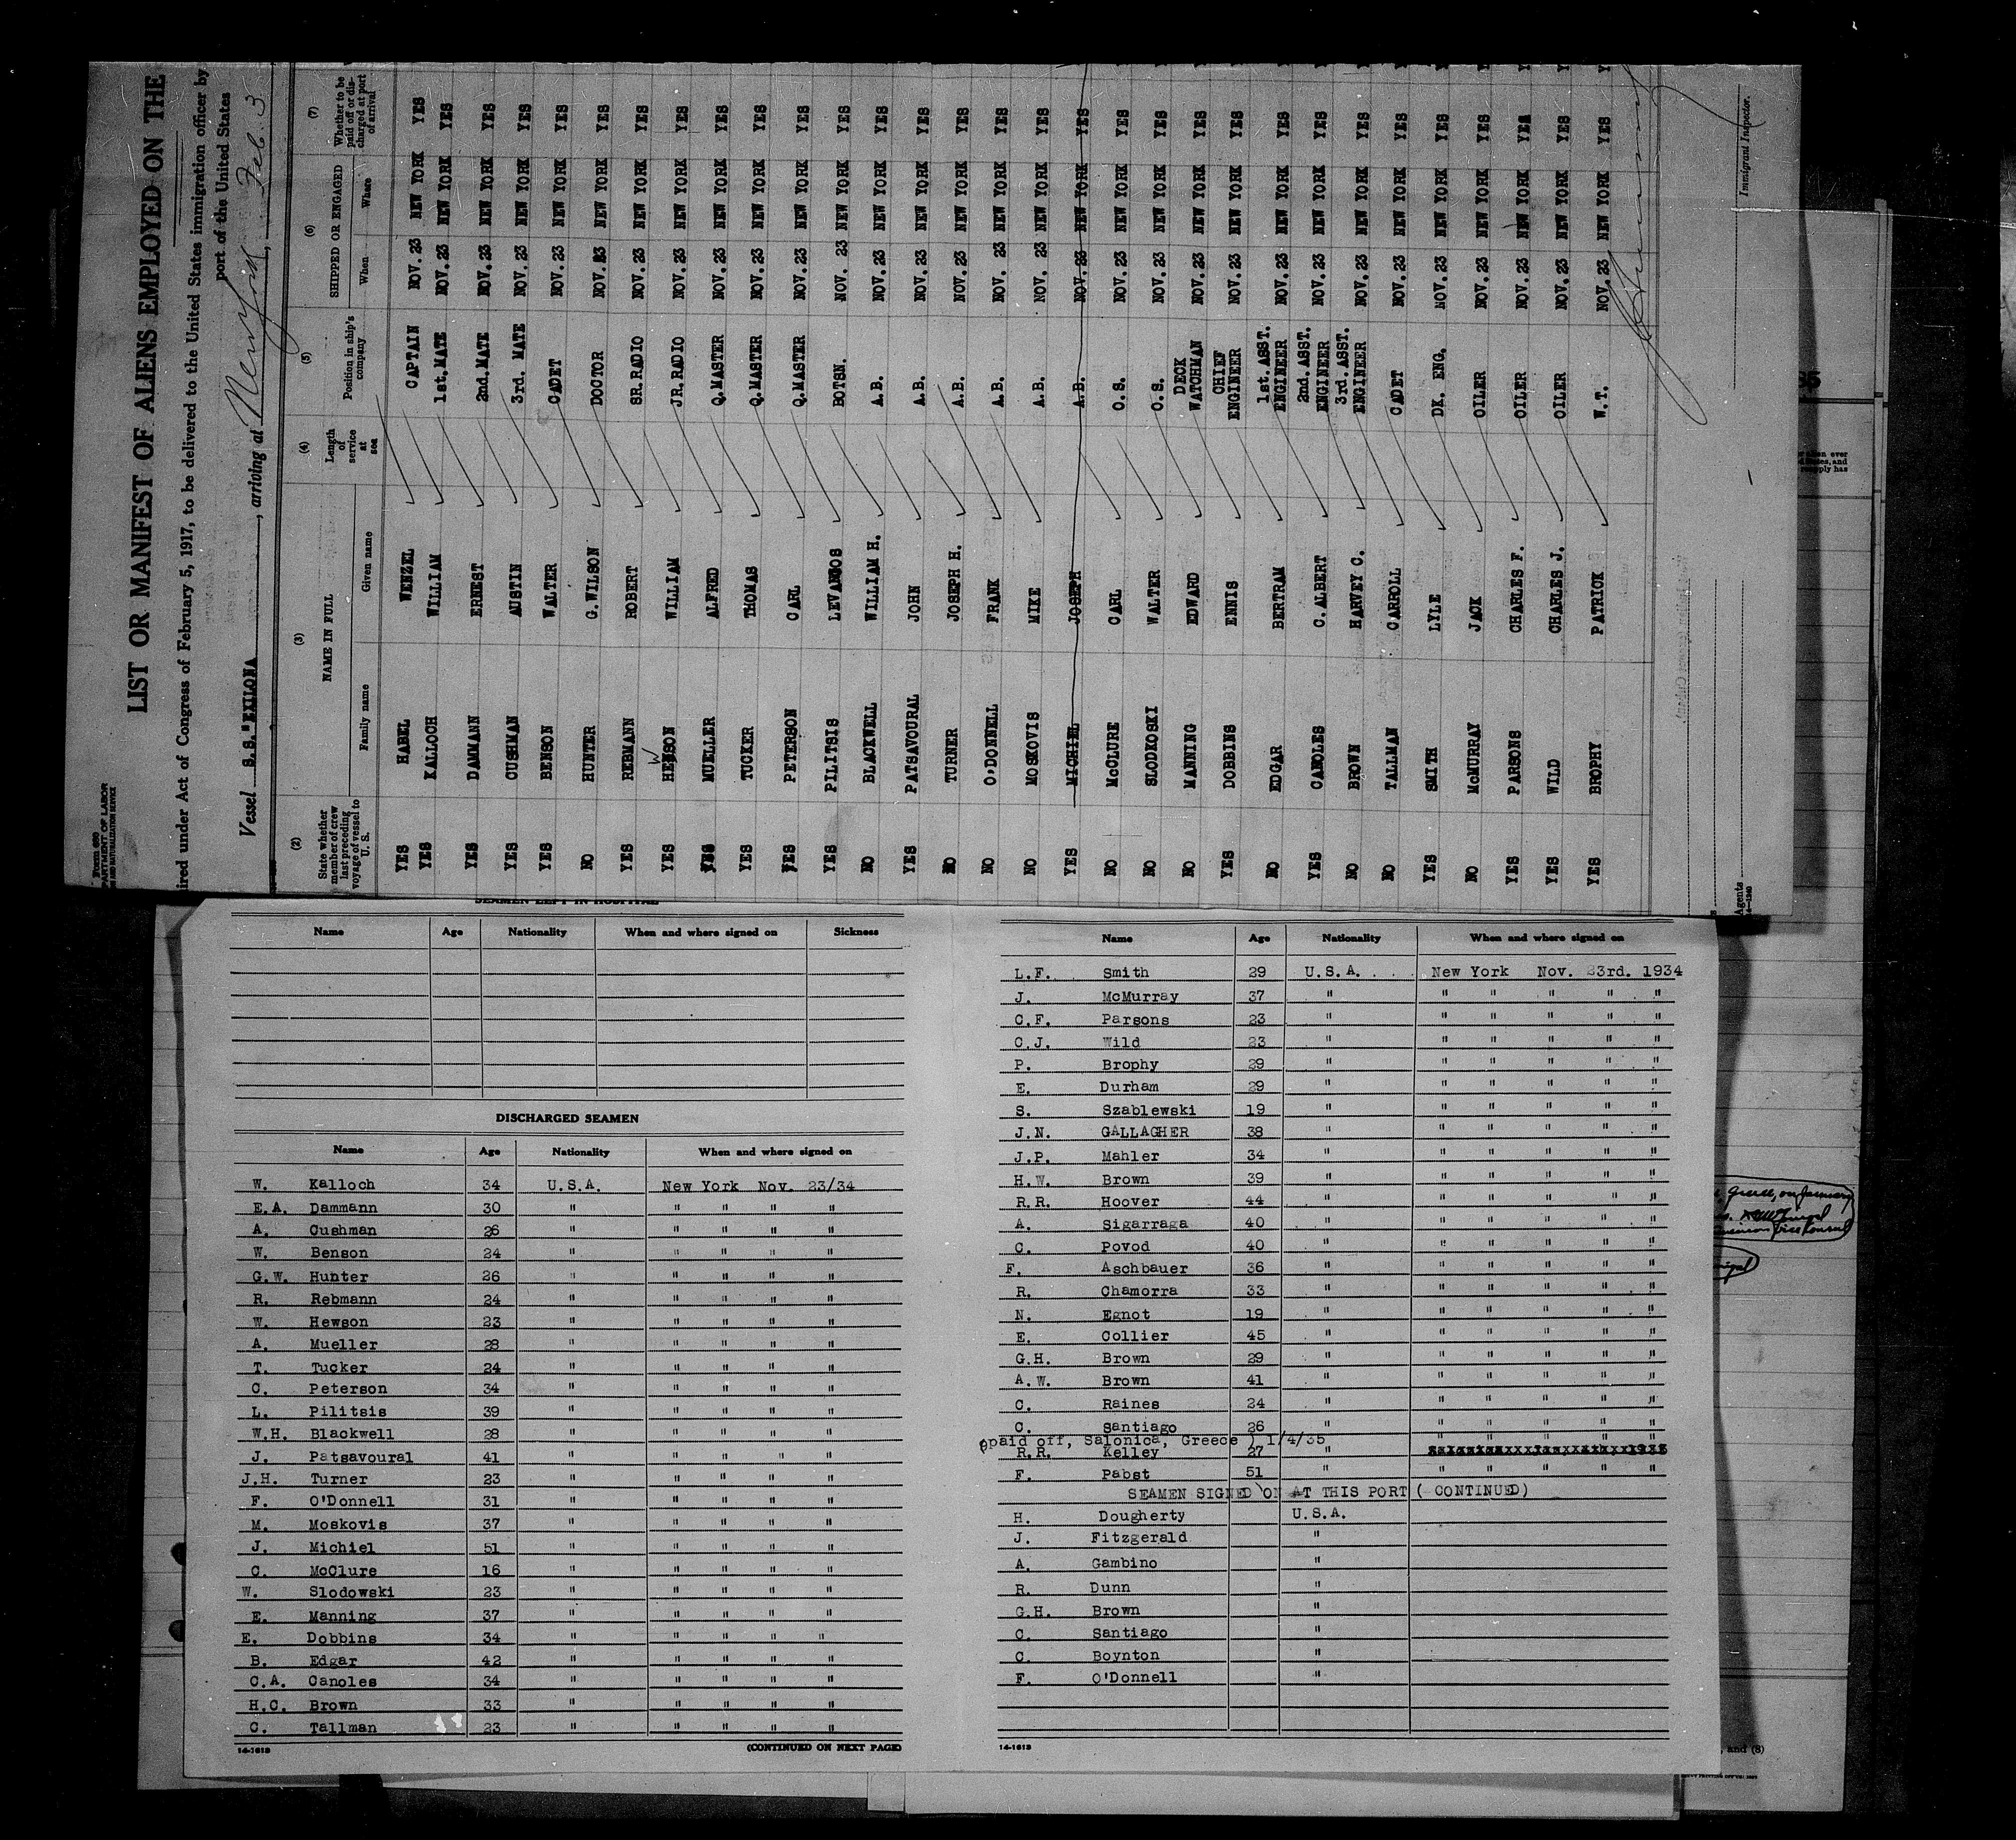 Form 680
DEPARTMENT OF LABOR
LIST OR MANIFEST OF ALIENS EMPLOYED ON THE
ired under Act of Congress of February 5, 1917, to be delivered to the United States immigration officer by
port of the United States
Vessel S.S."EXILONA , arriving at New York, Feb. 3
(2) (3) (4) (5) (6) (7)
State whether member of crew last preceding voyage of vessel to U. S. NAME IN FULL Length of service at sea Position in ship's company SHIPPED OR ENGAGED Whether to be paid off or discharged at port of arrival
Family name Given name When Where
YES HABEL WENZEL CAPTAIN NOV. 23 NEW YORK YES
YES KALLOCH WILLIAM 1st. MATE NOV. 23 NEW YORK YES
YES DAMMANN ERNEST 2nd. MATE NOV. 23 NEW YORK YES
YES CUSHMAN AUSTIN 3rd. MATE NOV. 23 NEW YORK YES
YES BENSON WALTER CADET NOV. 23 NEW YORK YES
NO HUNTER G. WILSON DOCTOR NOV. 23 NEW YORK YES
YES REBMANN ROBERT SR. RADIO NOV. 23 NEW YORK YES
YES HEWSON WILLIAM JR. RADIO NOV. 23 NEW YORK YES
YES MUELLER ALFRED Q. MASTER NOV. 23 NEW YORK YES
YES TUCKER THOMAS Q. MASTER NOV. 23 NEW YORK YES
YES PETERSON CARL Q. MASTER NOV. 23 NEW YORK YES
YES PILITSIS LEVANGOS BOTSN. NOV. 23 NEW YORK YES
NO BLACKWELL WILLIAM H. A.B. NOV. 23 NEW YORK YES
YES PATSAVOURAL JOHN A.B. NOV. 23 NEW YORK YES
NO TURNER JOSEPH H. A.B. NOV. 23 NEW YORK YES
NO O'DONNELL FRANK A.B. NOV. 23 NEW YORK YES
NO MOSKOVIS MIKE A.B. NOV. 23 NEW YORK YES
YES MICHIEL JOSEPH A.B. NOV. 23 NEW YORK YES
NO McCLURE CARL O.S. NOV. 23 NEW YORK YES
NO SLODKOSKI WALTER O.S. NOV. 23 NEW YORK YES
NO MANNING EDWARD DECK WATCHMAN NOV. 23 NEW YORK YES
YES DOBBINS ENNIS CHIEF ENGINEER NOV. 23 NEW YORK YES
NO EDGAR BERTRAM 1st. ASST. ENGINEER NOV. 23 NEW YORK YES
YES CANOLES C. ALBERT 2nd. ASST. ENGINEER NOV. 23 NEW YORK YES
NO BROWN HARVEY C. 3rd. ASST. ENGINEER NOV. 23 NEW YORK YES
NO TALLMAN CARROLL CADET NOV. 23 NEW YORK YES
YES SMITH LYLE DK. ENG. NOV. 23 NEW YORK YES
NO McMURRAY JACK OILER NOV. 23 NEW YORK YES
YES PARSONS CHARLES F. OILER NOV. 23 NEW YORK YES
YES WILD CHARLES J. OILER NOV. 23 NEW YORK YES
YES BROPHY PATRICK W.T. NOV. 23 NEW YORK YES
Immigrant Inspector.
Agents
SEAMEN LEFT IN HOSPITAL
Name Age Nationality When and where signed on Sickness
DISCHARGED SEAMEN
Name Age Nationality When and where signed on
W. Kalloch 34 U.S.A. New York Nov. 23/34
E.A. Dammann 30 " " " " "
A. Cushman 26 " " " " "
W. Benson 24 " " " " "
G.W. Hunter 26 " " " " "
R. Rebmann 24 " " " " "
W. Hewson 23 " " " " "
A. Mueller 28 " " " " "
T. Tucker 24 " " " " "
C. Peterson 34 " " " " "
L. Pilitsis 39 " " " " "
W.H. Blackwell 28 " " " " "
J. Patsavoural 41 " " " " "
J.H. Turner 23 " " " " "
F. O'Donnell 31 " " " " "
M. Moskovis 37 " " " " "
J. Michiel 51 " " " " "
C. McClure 16 " " " " "
W. Slodowski 23 " " " " "
E. Manning 37 " " " " "
E. Dobbins 34 " " " " "
B. Edgar 42 " " " " "
C.A. Canoles 34 " " " " "
H.C. Brown 33 " " " " "
C. Tallman 23 " " " " "
14-1613 (CONTINUED ON NEXT PAGE)
Name Age Nationality When and where signed on
L.F. Smith 29 U.S.A. New York Nov. 23rd. 1934
J. McMurray 37 " " " " " "
C.F. Parsons 23 " " " " " "
C.J. Wild 23 " " " " " "
P. Brophy 29 " " " " " "
E. Durham 29 " " " " " "
S. Szablewski 19 " " " " " "
J.N. GALLAGHER 38 " " " " " "
J.P. Mahler 34 " " " " " "
H.W. Brown 39 " " " " " "
R.R. Hoover 44 " " " " " "
A. Sigarraga 40 " " " " " "
C. Povod 40 " " " " " "
F. Aschbauer 36 " " " " " "
R. Chamorra 33 " " " " " "
N. Egnot 19 " " " " " "
E. Collier 45 " " " " " "
G.H. Brown 29 " " " " " "
A.W. Brown 41 " " " " " "
C. Raines 24 " " " " " "
C. Santiago 26 " " " " " "
(paid off, Salonica, Greece ) 1/4/35
R.R. Kelley 27 " " " " " "
F. Pabst 51 " " " " " "
SEAMEN SIGNED ON AT THIS PORT ( CONTINUED)
H. Dougherty U.S.A.
J. Fitzgerald "
A. Gambino "
R. Dunn "
G.H. Brown "
C. Santiago "
C. Boynton "
F. O'Donnell "
14-1613
, and (8)